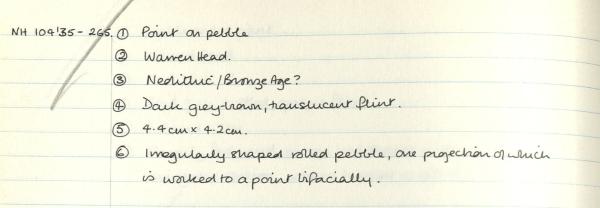 NH 104'35 - 265. ① Point on pebble
② Warren Head.
③ Neolithic/Bronze Age?
④ Dark grey-brown, translucent flint.
⑤ 4.4cm x 4.2cm.
⑥ Irregularly shaped rolled pebble, one projection of which
is worked to a point bifacially.